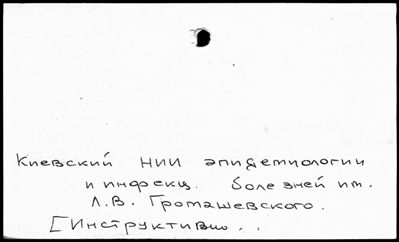 Киевский НИИ эпидемиологии
и инфекц. болезней им.
Л.В. Громашевского.
[Инструктивно..